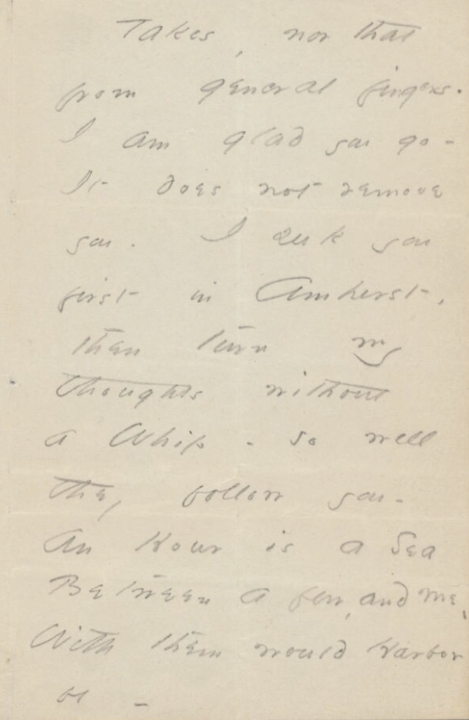 Takes, nor that
from general fingers.
I am glad you go -
It does not remove
you. I seek you
first in Amherst,
then turn my
thoughts without
a Whip - so well
they follow you -
An Hour is a Sea
Between a few, and me,
With them would Harbor
be -